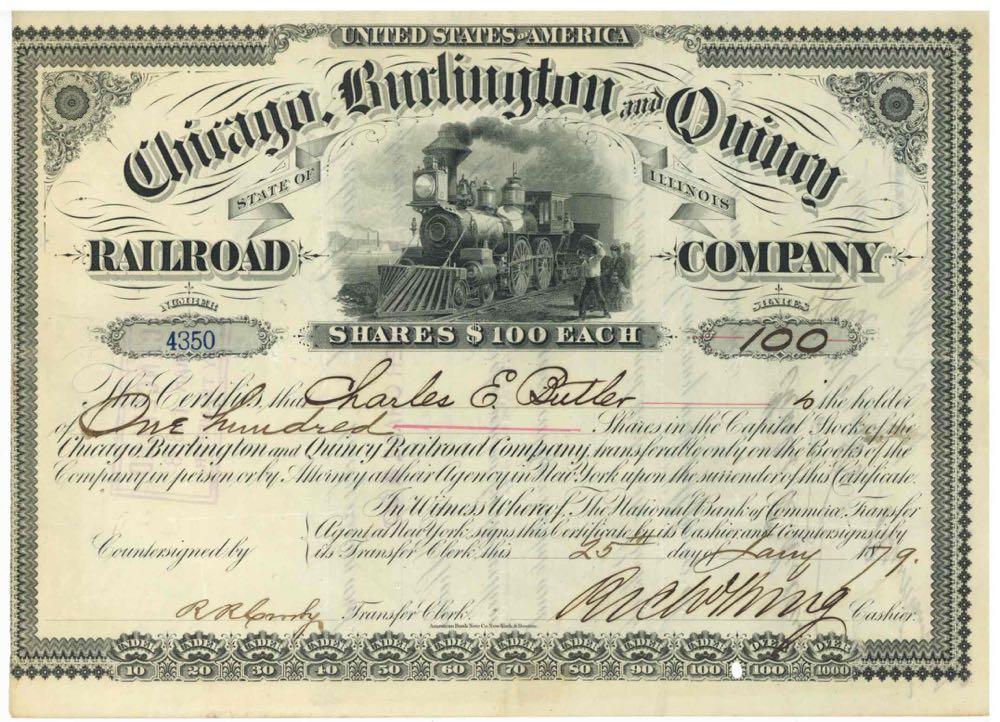 UNITED STATES OF AMERICA
Chicago, Burlington and Quincy
STATE OF ILLINOIS
RAILROAD COMPANY
NUMBER SHARES
4350 100
SHARES $100 EACH
This Certifies that Charles E. Butler is the holder
of One hundred Shares in the Capital Stock of the
Chicago, Burlington and Quincy Railroad Company, transferable only on the Books of the
Company in person or by Attorney at their Agency in New York upon the surrender of this Certificate.
In Witness Whereof, The National Bank of Commerce, Transfer
Agent at New York, signs this Certificate by its Cashier and Countersigns it by
its Transfer Clerk this 25th day of Jany 1879.
Countersigned by
Transfer Clerk. Cashier.
American Bank Note Co. New York & Boston.
UNDER UNDER UNDER UNDER UNDER UNDER UNDER UNDER UNDER UNDER OVER OVER
10 20 30 40 50 60 70 80 90 100 100 1000